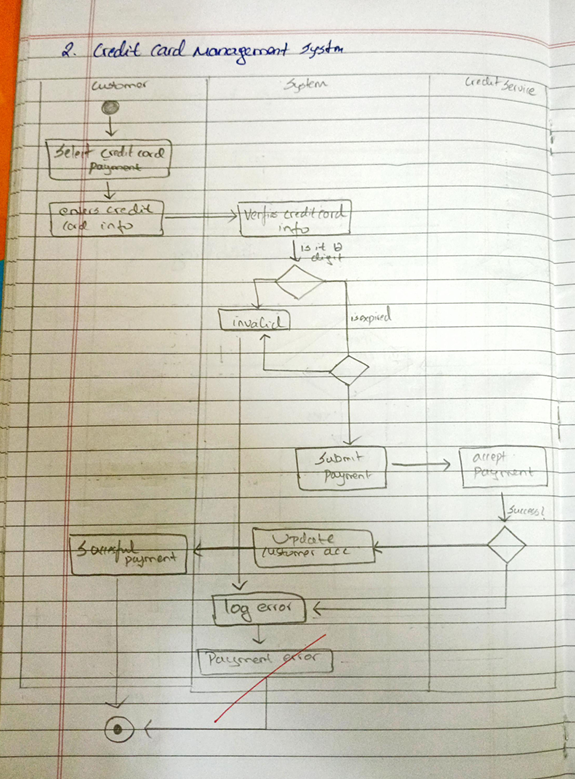 2. Credit Card Management System
Customer
System
Credit Service
Select credit card
payment
enters credit
card info
Verfies credit card
info
is it 16
digit
invalid
is expired
Submit
payment
accept
Payment
Success?
Update
customer acc
payment
log error
Payment error